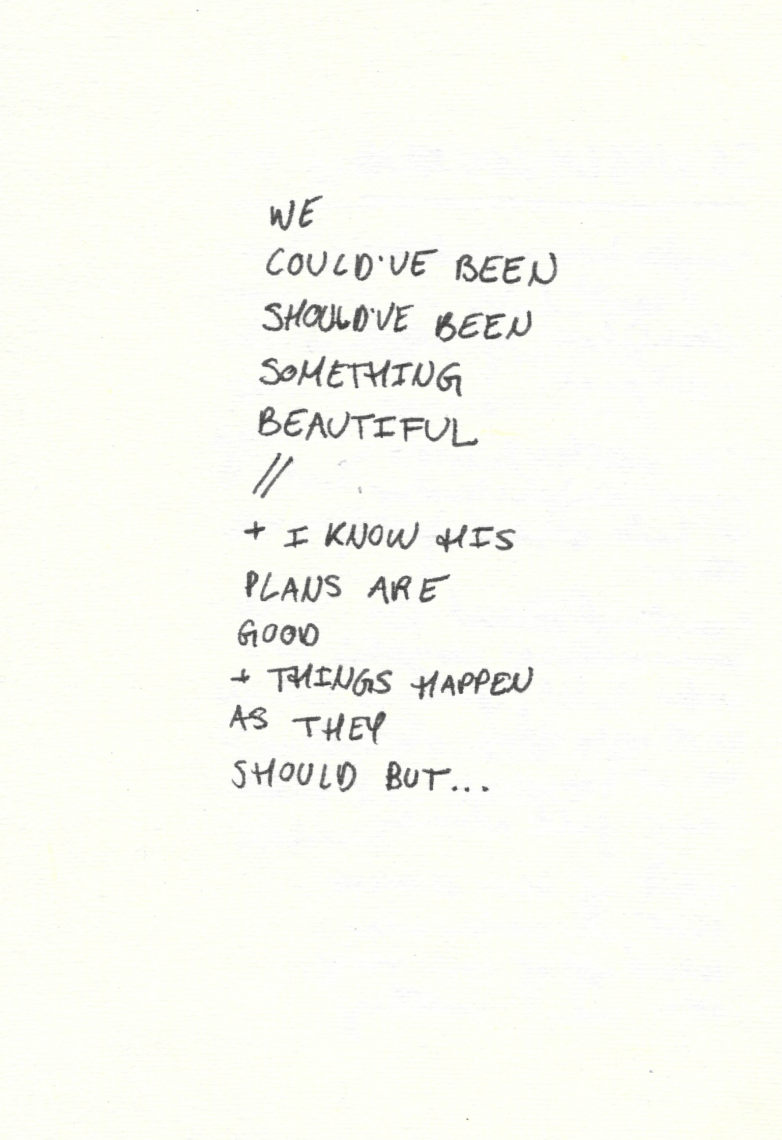 WE
COULD'VE BEEN
SHOULD'VE BEEN
SOMETHING
BEAUTIFUL
//
+ I KNOW HIS
PLANS ARE
GOOD
+ THINGS HAPPEN
AS THEY
SHOULD BUT...